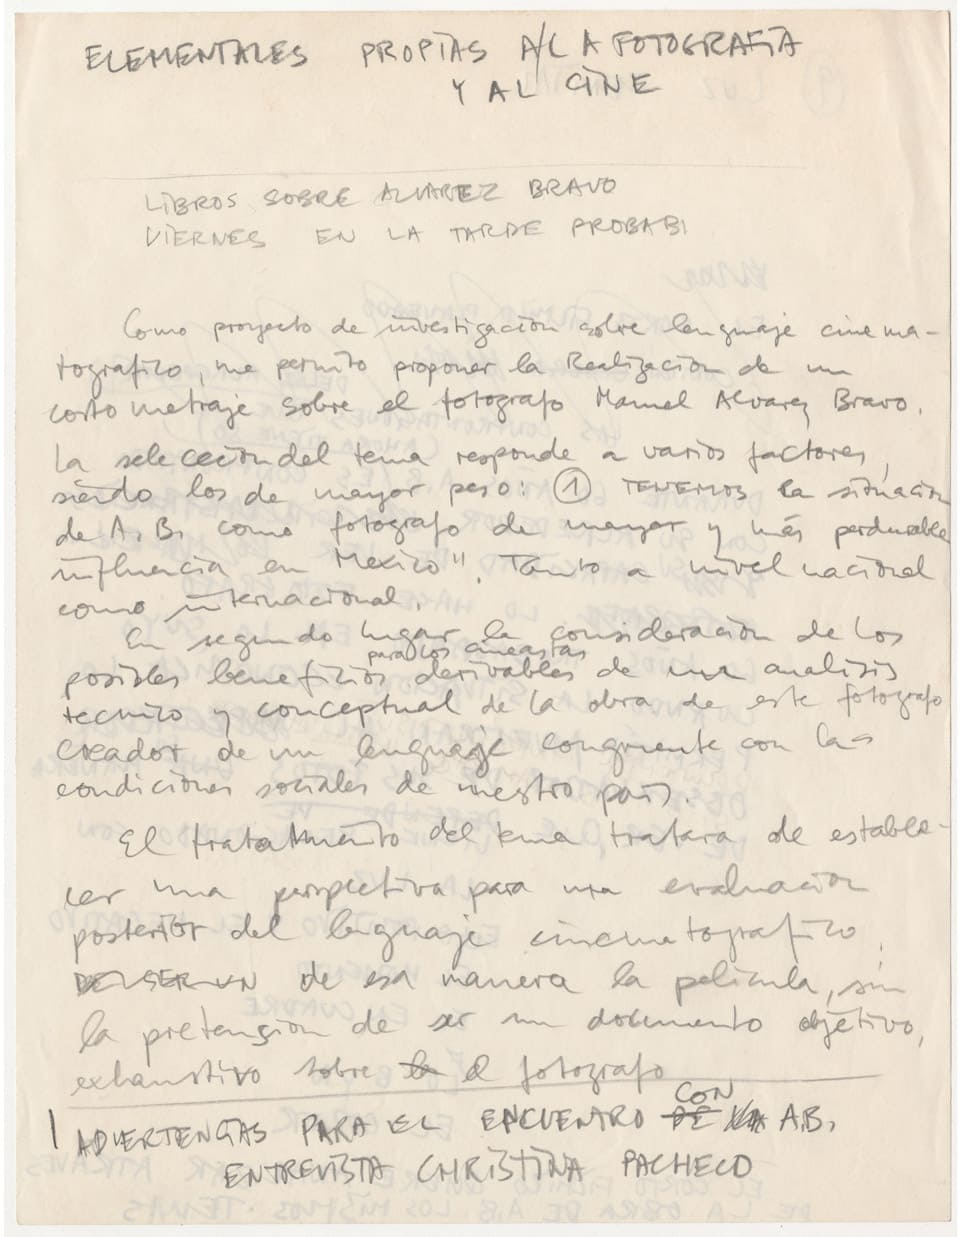 ELEMENTALES PROPIAS A/LA FOTOGRAFIA
Y AL CINE
LIBROS SOBRE ALVAREZ BRAVO
VIERNES EN LA TARDE PROBABI
Como proyecto de investigación sobre lenguaje cinema-
tografico, me permito proponer la Realización de un
corto metraje sobre el fotografo Manuel Alvarez Bravo.
La selección del tema responde a varios factores,
siendo los de mayor peso: ① TENEMOS la situación
de A. B. como fotografo de mayor y más perdurable
influencia en Mexico". Tanto a nivel nacional
como internacional.
En segundo lugar la consideración de los
para los cineastas
posibles beneficios derivables de un analisis
tecnico y conceptual de la obra de este fotografo
creador de un lenguaje congruente con las
condiciones sociales de nuestro país.
El tratamiento del tema, tratara de estable-
cer una perspectiva para una evaluación
posterior del lenguaje cinematografico,
SER UN de esa manera la pelicula, sin
la pretension de ser un documento objetivo,
exhaustivo sobre la el fotografo
CON
ADVERTENCIAS PARA EL ENCUENTRO DE A.B.
ENTREVISTA CHRISTINA PACHECO